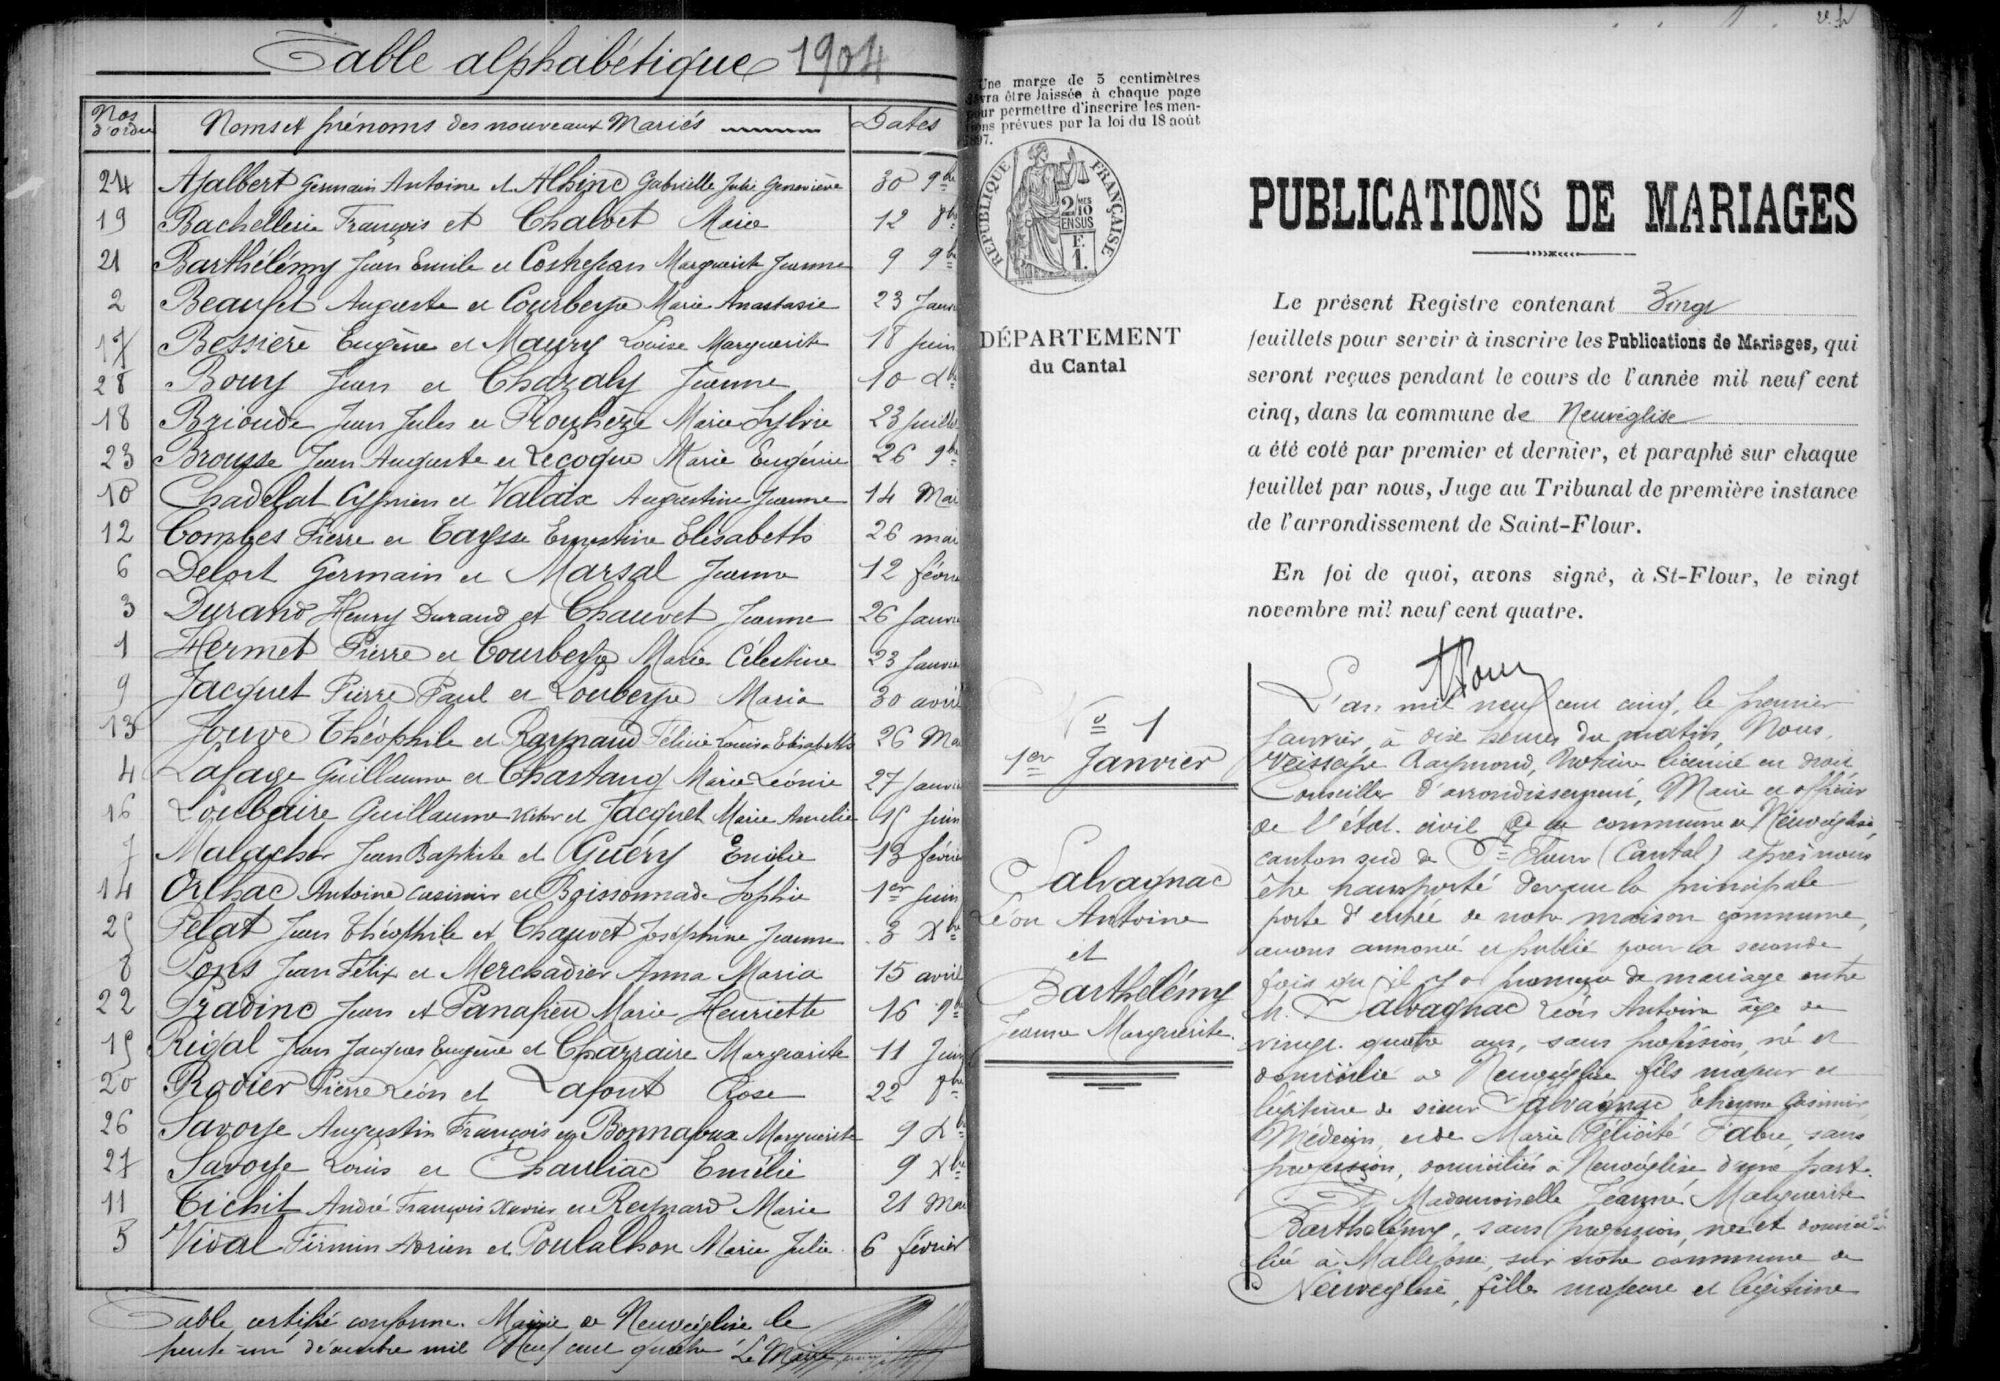 Table alphabétique 1904
Nos d'ordre Noms et prénoms des nouveaux Mariés Dates
24 Ajalbert Germain Antoine et Albinc Gabrielle Julie Geneviève 30 9bre
19 Bachellerie François et Chalvet Marie 12 8bre
21 Barthélémy Jean Emile et Marguerite Jeanne 9 9bre
2 Beaufet Auguste et Courbeyre Marie Anastasie 23 Janv
17 Bessière Eugène et Maury Louise Marguerite 18 juin
28 Bouy Jean et Chazaly Jeanne 10 Xbre
18 Brioude Jean Jules et Rouheze Marie Sylvie 23 juillet
23 Brousse Jean Auguste et Lecoque Marie Eugénie 26 9bre
10 Chadelat Cyprien et Valaix Augustine Jeanne 14 Mai
12 Combes Pierre et Taysse Ernestine Elisabeth 26 mai
6 Delort Germain et Marsal Jeanne 12 févri
3 Durand Henry Durand et Chauvet Jeanne 26 Janvi
1 Hermet Pierre et Courbeyre Marie Célestine 23 Janvie
9 Jacquet Pierre Paul et Loubeyre Maria 30 avril
13 Jouve Théophile et Raynaud Félicie Louise Elisabeth 26 Mai
4 Lafage Guillaume et Chastang Marie Léonie 27 Janvi
16 Loubaire Guillaume Victor et Jacquet Marie Amelie 15 Juin
7 Malacher Jean Baptiste et Guéry Emilie 13 févrie
14 Orlhac Antoine Casimir et Boissonnade Sophie 1er Juin
25 Pelat Jean Théophile et Chauvet Joséphine Jeanne 3 Xbre
8 Pons Jean Félix et Merchadier Anna Maria 15 avril
22 Pradinc Jean et Panafieu Marie Henriette 16 9bre
15 Rigal Jean Jacques Eugène et Charraire Marguerite 11 Juin
20 Rodier Pierre Léon et Lafont Rose 22 8bre
26 Savoye Augustin François et Bonnafoux Marguerite 9 Xbre
27 Savoye Louis et Chauliac Emélie 9 Xbre
11 Tichit André François Xavier et Reynard Marie 21 Mai
5 Vidal Firmin Adrien et Poulalhon Marie Julie 6 février
Table certifié conforme. Mairie de Neuvéglise le
trente-un décembre mil Neuf cent quatre Le Maire
Une marge de 5 centimètres
devra être laissée à chaque page
pour permettre d'inscrire les men-
tions prévues par la loi du 18 août
1897.
RÉPUBLIQUE FRANÇAISE
2 MES 10 EN SUS
F. 1.
DÉPARTEMENT
du Cantal
No 1
1er Janvier
Salvagnac
Léon Antoine
et
Barthélémy
Jeanne Marguerite
PUBLICATIONS DE MARIAGES
Le présent Registre contenant Vingt
feuillets pour servir à inscrire les Publications de Mariages, qui
seront reçues pendant le cours de l'année mil neuf cent
cinq, dans la commune de Neuvéglise
a été coté par premier et dernier, et paraphé sur chaque
feuillet par nous, Juge au Tribunal de première instance
de l'arrondissement de Saint-Flour.
En foi de quoi, avons signé, à St-Flour, le vingt
novembre mil neuf cent quatre.
L'an mil neuf cent cinq, le premier
Janvier, à dix heures du matin, Nous,
Veissaye Raymond, Notaire licencié en droit
Conseiller d'arrondissement, Maire et officier
de l'état civil de la commune de Neuvéglise,
canton sud de St Flour (Cantal) après nous
être transporté devant la principale
porte d'entrée de notre maison commune,
avons annoncé et publié pour la seconde
fois qu'il y a promesse de mariage entre
M. Salvagnac Léon Antoine âgé de
vingt quatre ans, sans profession, né et
domicilié à Neuvéglise fils majeur et
légitime de sieur Salvagnac Etienne Casimir,
Médecin, et de Marie Félicité Fabre, sans
profession, domiciliés à Neuvéglise, d'une part.
Et Mademoiselle Jeanne Marguerite
Barthélémy, sans profession, née et domici-
liée à Mallefosse, sur notre commune de
Neuvéglise, fille majeure et légitime